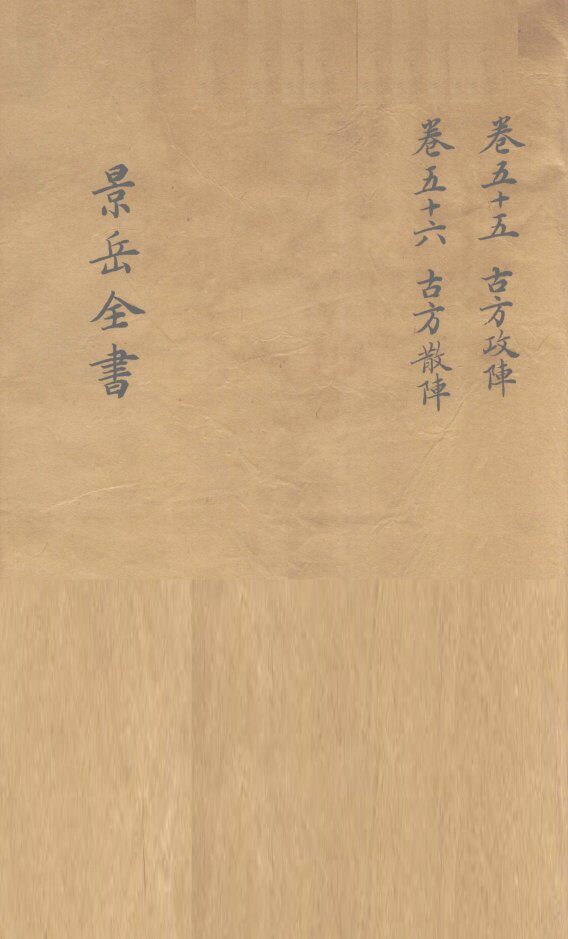 卷五十五 古方攻陣
卷五十六 古方散陣
景岳全書